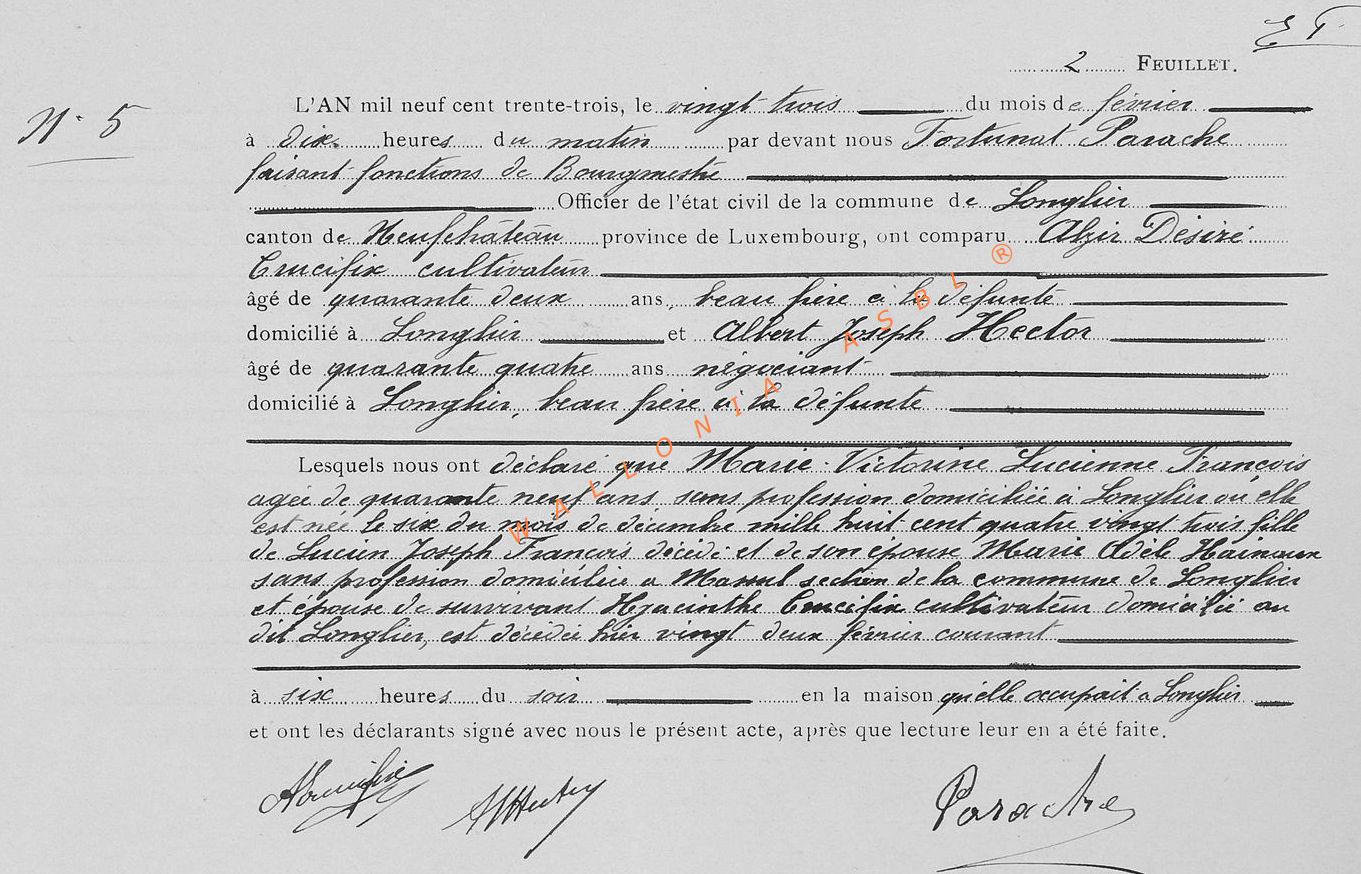 E T
2 FEUILLET.
N° 5
L'AN mil neuf cent trente-trois, le vingt trois du mois de février
à dix heures du matin par devant nous Fortunat Parache
faisant fonctions de Bourgmestre
Officier de l'état civil de la commune de Longlier
canton de Neufchâteau province de Luxembourg, ont comparu Alzir Désiré
Crucifix cultivateur
âgé de quarante deux ans, beau frère à la défunte
domicilié à Longlier et Albert Joseph Hector
âgé de quarante quatre ans négociant
domicilié à Longlier, beau frère à la défunte
Lesquels nous ont déclaré que Marie Victorine Lucienne François
agée de quarante neuf ans sans profession domiciliée à Longlier où elle
est née le six du mois de décembre mille huit cent quatre vingt trois fille
de Lucien Joseph François décédé et de son épouse Marie Adèle Hainaux
sans profession domiciliée a Massul section de la commune de Longlier
et épouse de survivant Hyacinthe Crucifix cultivateur domicilié au
dit Longlier, est décédée hier vingt deux février courant
à six heures du soir en la maison qu'elle occupait a Longlier
et ont les déclarants signé avec nous le présent acte, après que lecture leur en a été faite.
Parache
WALLONIA ASBL ®